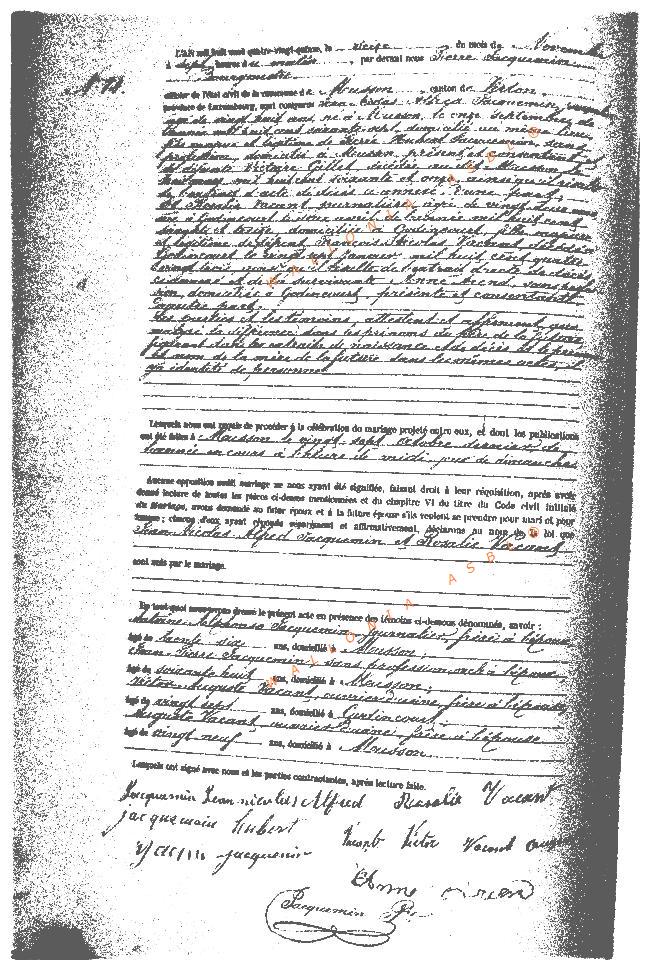 L'AN mil huit cent quatre-vingt-quinze, le seize du mois de Novembre
à sept heures du matin, par devant nous Pierre Jacquemin
Bourgmestre
N° 12.
officier de l'état civil de la commune de Musson, canton de Virton,
province de Luxembourg, sont comparus Jean Nicolas Alfred Jacquemin,
âgé de vingt huit ans, né à Musson, le onze septembre de
l'année mil huit cent soixante sept, domicilié au même lieu,
fils majeur et légitime de Pierre Hubert Jacquemin, sans
profession, domicilié à Musson, présent et consentant et
de défunte Victoire Gillet, décédée au dit Musson, le
huit mai mil huit cent soixante et onze, ainsi qu'il résulte
de l'extrait d'acte de décès ci annexé, d'une part;
Et Rosalie Vacant, journalière, âgée de vingt deux ans,
née à Godincourt le deux avril de l'année mil huit cent
septante et treize, domiciliée à Godincourt, fille majeure
et légitime de défunt François Nicolas Vacant, décédé à
Godincourt le vingt sept janvier mil huit cent quatre
vingt trois, ainsi qu'il résulte de l'extrait d'acte de décès
ci annexé et de la survivante Anne Arend, sans profes
sion, domiciliée à Godincourt, présente et consentante
d'autre part.
Les parties et les témoins, attestent et affirment que
malgré la différence dans les prénoms du père de la future
figurant dans les extraits de naissance et de décès et le prénom
et nom de la mère de la future dans les mêmes actes, il
y a identité de personnes
Lesquels nous ont requis de procéder à la célébration du mariage projeté entre eux, et dont les publications
ont été faites à Musson le vingt sept octobre dernier, de
l'année en cours à l'heure de midi, jour de dimanche
Aucune opposition audit mariage ne nous ayant été signifiée, faisant droit à leur réquisition, après avoir
donné lecture de toutes les pièces ci-dessus mentionnées et du chapitre VI du titre du Code civil intitulé
du Mariage, avons demandé au futur époux et à la future épouse s'ils veulent se prendre pour mari et pour
femme; chacun d'eux ayant répondu séparément et affirmativement, déclarons au nom de la loi que
Jean Nicolas Alfred Jacquemin et Rosalie Vacant
sont unis par le mariage.
En tout quoi nous avons dressé le présent acte en présence des témoins ci-dessous dénommés, savoir:
Alphonse Jacquemin, journalier, frère à l'époux
âgé de trente six ans, domicilié à Musson;
Jean Pierre Jacquemin, sans profession, oncle à l'époux
âgé de soixante huit ans, domicilié à Musson;
Victor Auguste Vacant, ouvrier d'usine, frère à l'épouse
âgé de vingt sept ans, domicilié à Godincourt;
Auguste Vacant, ouvrier d'usine, frère à l'épouse
âgé de vingt neuf ans, domicilié à Musson
Lesquels ont signé avec nous et les parties contractantes, après lecture faite.
Jacquemin Jean-nicolas Alfred Rosalie Vacant
jacquemin hubert
Vacant Victor Vacant
jacquemin
Anne
Jacquemin Pre
WALLONIA ASBL ©
WALLONIA ASBL ©